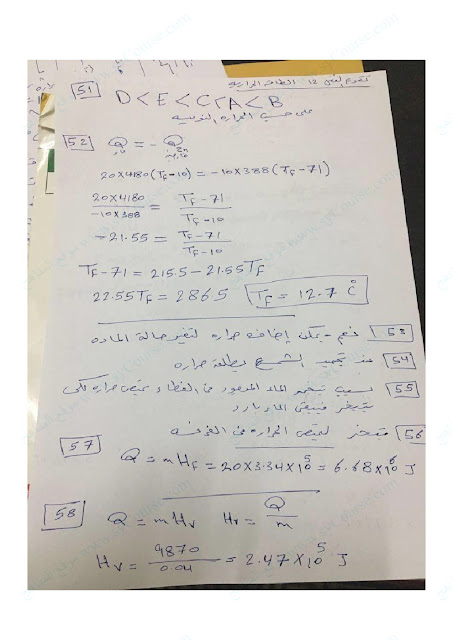 تقويم الفصل 12 الطاقة الحرارية
51 D < E < C < A < B
على حسب الحرارة النوعية
52 Q = - Q
20×4180(TF-10) = -10×388(TF-71)
20×4180/-10×388 = TF-71/TF-10
-21.55 = TF-71/TF-10
TF-71 = 215.5 - 21.55TF
22.55TF = 286.5 TF = 12.7 C°
53 نعم يمكن إضافه حراره لتغير حالة الماده
54 عند تجمد الشمع يطلق حراره
55 بسبب تبخر الماء الموجود في الغطاء يمتص حراره لكي
يتبخر فيبقى الماء بارد
56 تبخر ليمتص الحراره من الغرفه
57 Q = mHF = 20×3.34×10^5 = 6.68×10^6 J
58 Q = mHv Hv = Q/m
Hv = 9870/0.04 = 2.47×10^5 J